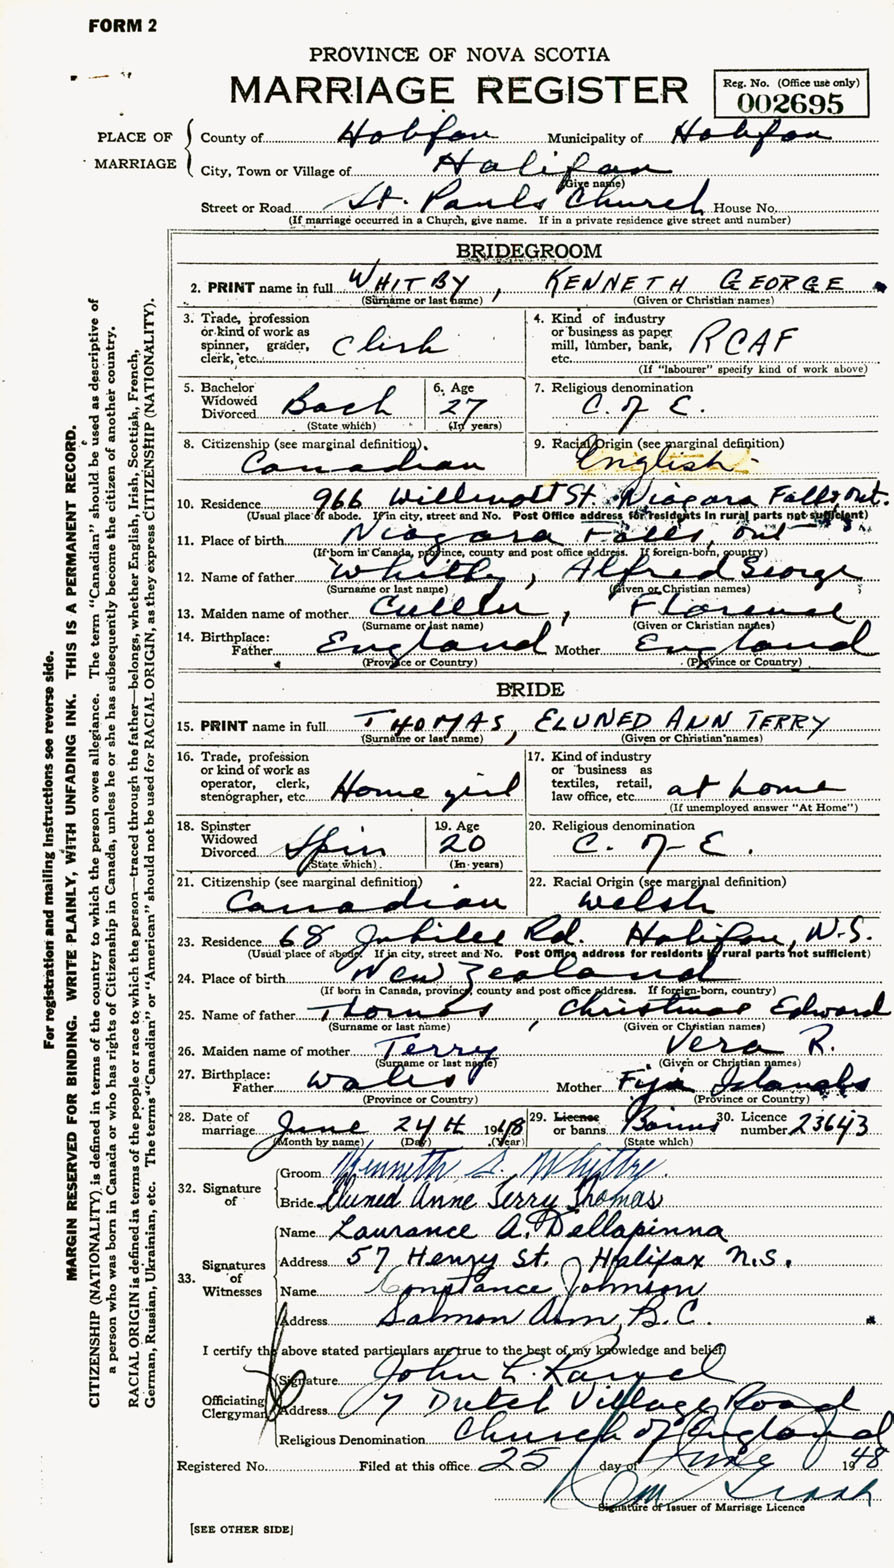 FORM 2
PROVINCE OF NOVA SCOTIA
MARRIAGE REGISTER
Reg. No. (Office use only)
002695
PLACE OF MARRIAGE
County of Halifax Municipality of Halifax
City, Town or Village of Halifax
(Give name)
Street or Road St. Pauls Church House No.
(If marriage occurred in a Church, give name. If in a private residence give street and number)
BRIDEGROOM
2. PRINT name in full WHITBY, KENNETH GEORGE
(Surname or last name) (Given or Christian names)
3. Trade, profession or kind of work as spinner, grader, clerk, etc. Clerk
4. Kind of industry or business as paper mill, lumber, bank, etc. RCAF
(If "labourer" specify kind of work above)
5. Bachelor Widowed Divorced Bach
(State which)
6. Age 27
(In years)
7. Religious denomination
C. of E.
8. Citizenship (see marginal definition)
Canadian
9. Racial Origin (see marginal definition)
English
10. Residence 966 Willmott St. Niagara Falls Ont.
(Usual place of abode. If in city, street and No. Post Office address for residents in rural parts not sufficient)
11. Place of birth Niagara Falls, Ont
(If born in Canada, province, county and post office address. If foreign-born, country)
12. Name of father Whitby, Alfred George
(Surname or last name) (Given or Christian names)
13. Maiden name of mother Cullen, Florence
(Surname or last name) (Given or Christian names)
14. Birthplace:
Father England Mother England
(Province or Country) (Province or Country)
BRIDE
15. PRINT name in full THOMAS, ELUNED ANN TERRY
(Surname or last name) (Given or Christian names)
16. Trade, profession or kind of work as operator, clerk, stenographer, etc. Home girl
17. Kind of industry or business as textiles, retail, law office, etc. at home
(If unemployed answer "At Home")
18. Spinster Widowed Divorced Spin
(State which)
19. Age 20
(In years)
20. Religious denomination
C. of E.
21. Citizenship (see marginal definition)
Canadian
22. Racial Origin (see marginal definition)
Welsh
23. Residence 68 Jubilee Rd. Halifax, N.S.
(Usual place of abode. If in city, street and No. Post Office address for residents in rural parts not sufficient)
24. Place of birth New Zealand
(If born in Canada, province, county and post office address. If foreign-born, country)
25. Name of father Thomas, Christmas Edward
(Surname or last name) (Given or Christian names)
26. Maiden name of mother Terry Vera R.
(Surname or last name) (Given or Christian names)
27. Birthplace:
Father Wales Mother Fiji Islands
(Province or Country) (Province or Country)
28. Date of marriage June 24th 1948
(Month by name) (Day) (Year)
29. Licence or banns Banns
(State which)
30. Licence number 23643
32. Signature of
Groom Kenneth G. Whitby
Bride Eluned Anne Terry Thomas
33. Signatures of Witnesses
Name Laurance A. Dellapinna
Address 57 Henry St. Halifax N.S.
Name Constance Johnson
Address Salmon Arm, B.C.
I certify the above stated particulars are true to the best of my knowledge and belief
Officiating Clergyman
Signature John L.
Address 7 Dutch Village Road
Religious Denomination Church of England
Registered No. Filed at this office 25 day of June 1948
Signature of Issuer of Marriage Licence
[SEE OTHER SIDE]
For registration and mailing instructions see reverse side.
MARGIN RESERVED FOR BINDING. WRITE PLAINLY, WITH UNFADING INK. THIS IS A PERMANENT RECORD.
CITIZENSHIP (NATIONALITY) is defined in terms of the country to which the person owes allegiance. The term "Canadian" should be used as descriptive of
a person who was born in Canada or who has rights of Citizenship in Canada, unless he or she has subsequently become the citizen of another country.
RACIAL ORIGIN is defined in terms of the people or race to which the person—traced through the father—belongs, whether English, Irish, Scottish, French,
German, Russian, Ukrainian, etc. The terms "Canadian" or "American" should not be used for RACIAL ORIGIN, as they express CITIZENSHIP (NATIONALITY).